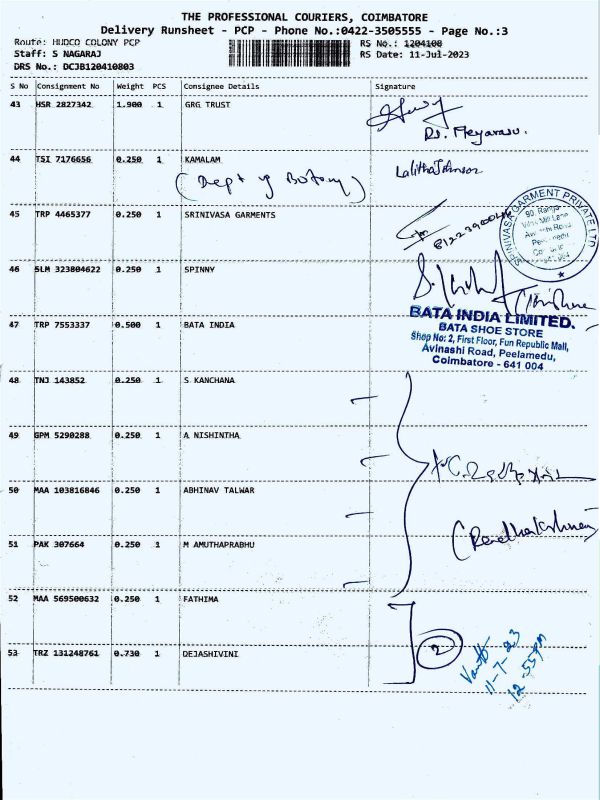 THE PROFESSIONAL COURIERS, COIMBATORE
Delivery Runsheet - PCP - Phone No.:0422-3505555 - Page No.:3
Route: HUDCO COLONY PCP RS No.: 1204108
Staff: S NAGARAJ RS Date: 11-Jul-2023
DRS No.: DCJB120410803
S No Consignment No Weight PCS Consignee Details Signature
43 HSR 2827342 1.900 1 GRG TRUST
44 TSI 7176656 0.250 1 KAMALAM
(Dept of Botany)
Lalitha Johnson
45 TRP 4465377 0.250 1 SRINIVASA GARMENTS
SRINIVASA GARMENT PRIVATE LTD
46 SLM 323804622 0.250 1 SPINNY
47 TRP 7553337 0.500 1 BATA INDIA
BATA INDIA LIMITED.
BATA SHOE STORE
Shop No: 2, First Floor, Fun Republic Mall,
Avinashi Road, Peelamedu,
Coimbatore - 641 004
48 TNJ 143852 0.250 1 S KANCHANA
49 GPM 5290288 0.250 1 A NISHINTHA
50 MAA 103816846 0.250 1 ABHINAV TALWAR
(Radhakrishnan)
51 PAK 307664 0.250 1 M AMUTHAPRABHU
52 MAA 569500632 0.250 1 FATHIMA
53 TRZ 131248761 0.730 1 DEJASHIVINI
2
11-7-23
12.55PM